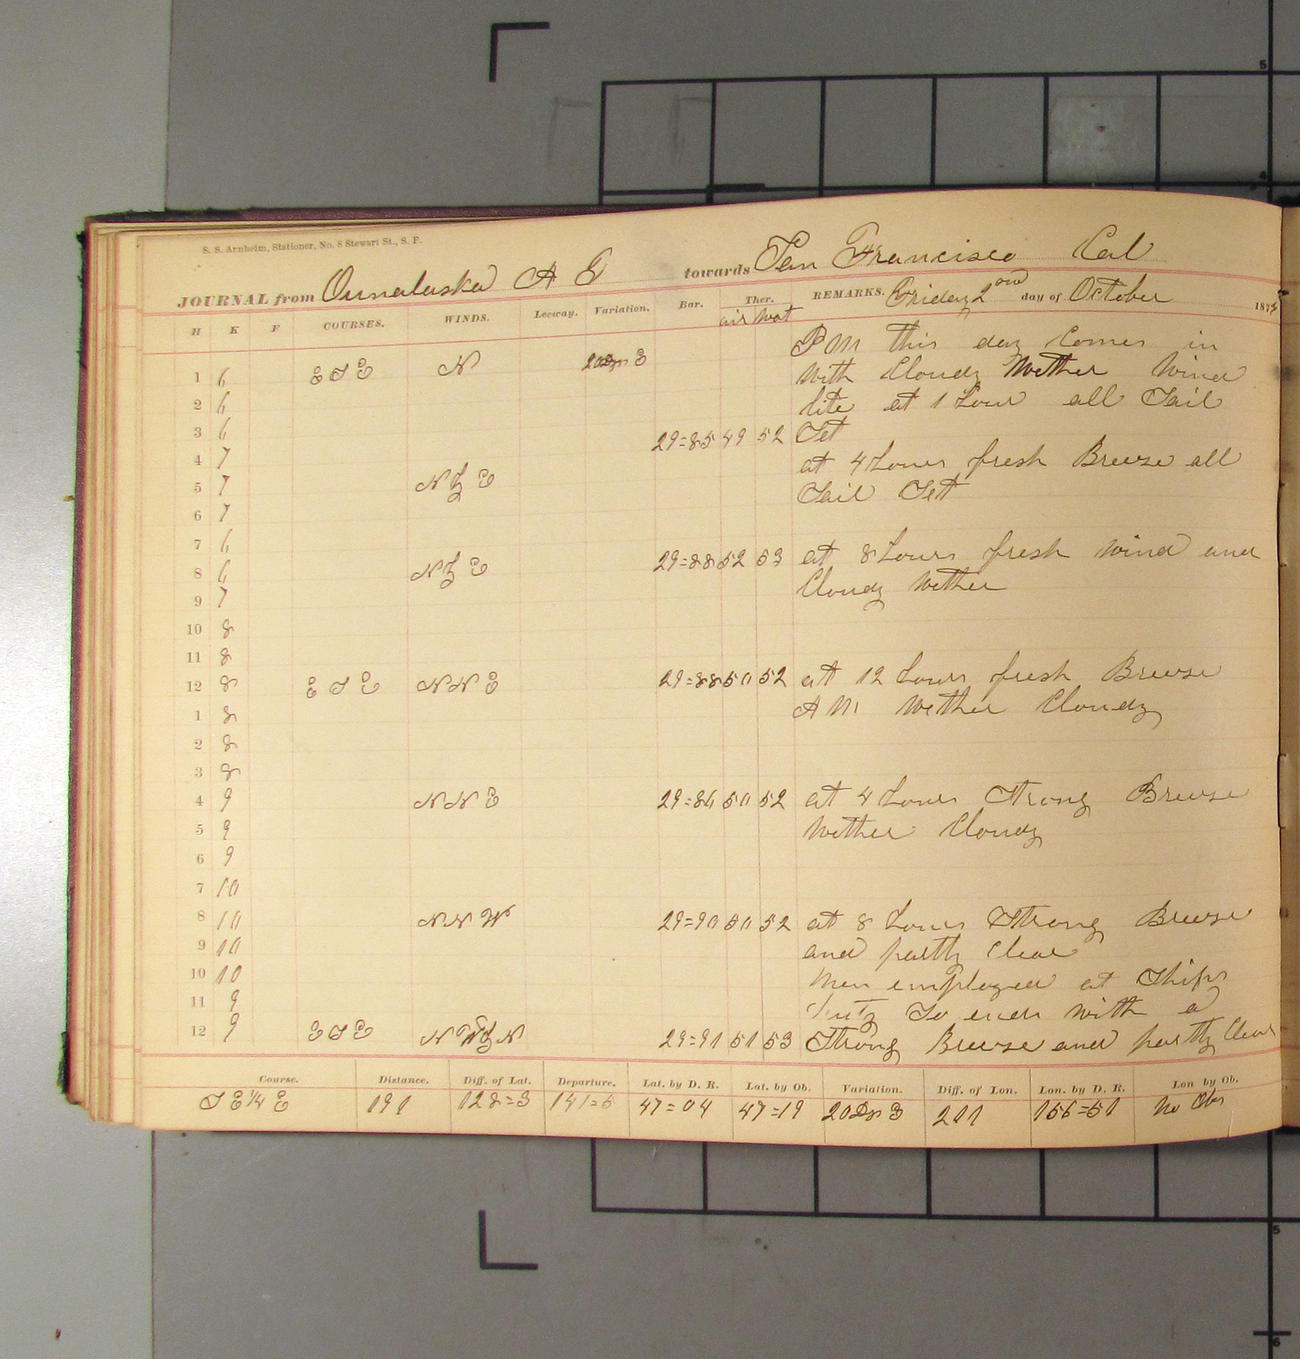 S. S. Arnheim, Stationer, No. 8 Stewart St., S. F.
JOURNAL from Ounalaska A T towards San Francisco Cal
H K F COURSES. WINDS. Leeway. Variation. Bar. Ther. REMARKS. Friday 2ond day of October 187
air Wat
P M this day Comes in
1 6 E S E N 20Dgs E With Cloudy Wether Wind
2 6 lite at 1 hour all Sail
3 6 29=85 49 52 Set
4 7 at 4 hours fresh Breese all
5 7 N b E Sail Set
6 7
7 6 29=88 52 53 at 8 hours fresh Wind and
8 6 N b E Cloudy Wether
9 7
10 8
11 8
12 8 E S E N N E 29=88 50 52 at 12 hours fresh Breese
1 8 A M Wether Cloudy
2 8
3 8
4 9 N N E 29=86 50 52 at 4 hours Strong Breese
5 9 Wether Cloudy
6 9
7 10
8 10 N N W 29=90 50 52 at 8 hours Strong Breese
9 10 and partly Clear
10 10 Men employed at Ships
11 9 Duty So ends with a
12 9 E S E N W b N 29=91 51 53 Strong Breese and partly Clear
Course. Distance. Diff. of Lat. Departure. Lat. by D. R. Lat. by Ob. Variation. Diff. of Lon. Lon. by D. R. Lon by Ob.
S E ¼ E 191 128=3 141=5 47=04 47=19 20Dgs E 211 156=51 No Obs